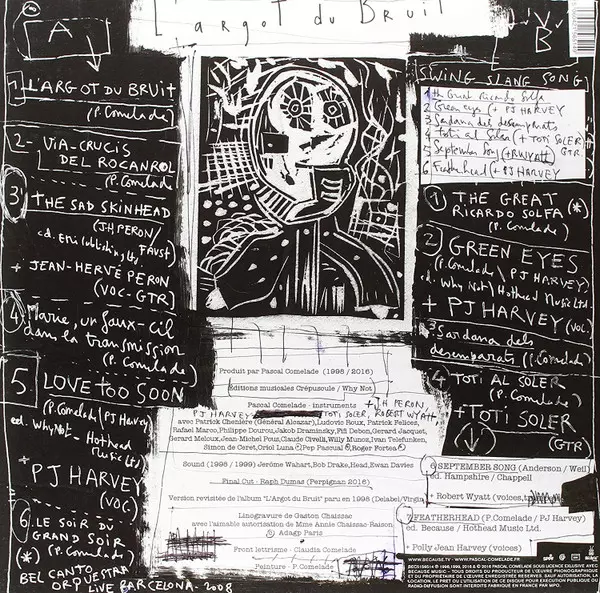 L'argot du Bruit
A
1 L'ARGOT DU BRUIT
(P. Comelade)
2- VIA-CRUCIS
DEL ROCANROL
(P. Comelade)
3 THE SAD SKINHEAD
(JH PERON/
FAUST)
ed. EMI Publishing Ltd
+ JEAN-HERVÉ PERON
(VOC-GTR)
4 Marie, un faux-cil
dans la transmission
(P. Comelade)
5 LOVE TOO SOON
(P. Comelade/PJ Harvey
ed. Why Not - Hothead
Music Ltd)
+ PJ HARVEY
(VOC)
6. LE SOIR DU
GRAND SOIR
(*) (P. Comelade)
BEL CANTO
ORPQUESTRA
LIVE BARCELONA - 2008
B
SWING SLANG SONG
1 the Great Ricardo Solfa
2 Green eyes (+ PJ HARVEY
3 Sardana dels desemparats
4 toti al Soler (+ TOTI SOLER
GTR
5 September Song (+ R. WYATT)
6 Featherhead (+ PJ HARVEY
1 THE GREAT
RICARDO SOLFA (*)
(P. Comelade)
2 GREEN EYES
(P. Comelade \ PJ HARVEY)
ed. Why Not \ Hothead Music Ltd.
+ PJ HARVEY (VOC)
3 Sardana dels
desemparats (P. Comelade)
4 TOTI AL SOLER
(P. Comelade)
+ TOTI SOLER
(GTR)
6 SEPTEMBER SONG (Anderson / Weil
ed. Hampshire / Chappell
+ Robert Wyatt (voices,
7 FEATHERHEAD (P.Comelade / PJ Harvey)
ed. Because / Hothead Music Ltd.
+ Polly Jean Harvey (voices)
Produit par Pascal Comelade (1998 / 2016)
Éditions musicales Crépuscule / Why Not
Pascal Comelade - instruments
+ J.H PERON,
PJ HARVEY TOTI SOLER, ROBERT WYATT
avec Patrick Chenière (Général Alcazar), Ludovic Roux, Patrick Felices,
Rafael Marco, Philippe Dourou, Jakob Draminsky, Pifi Debon, Gerard Jacquet,
Gerard Meloux, Jean-Michel Pous, Claude Civelli, Willy Munoz, Ivan Telefunken,
Simon de Ceret, Oriol Luna, Pep Pascual, Roger Fortea
Sound (1998 / 1999) Jerome Wahart, Bob Drake, Head, Ewan Davies
Final Cut - Raph Dumas (Perpignan 2016)
Version revisitée de l'album "L'Argot du Bruit" paru en 1998 (Delabel/Virgin
Linogravure de Gaston Chaissac
avec l'aimable autorisation de Mme Annie Chaissac-Raison
© Adagp Paris
Front lettrisme - Claudia Comelade
Peinture - P. Comelade
WWW.BECAUSE.TV - WWW.PASCAL-COMELADE.FR